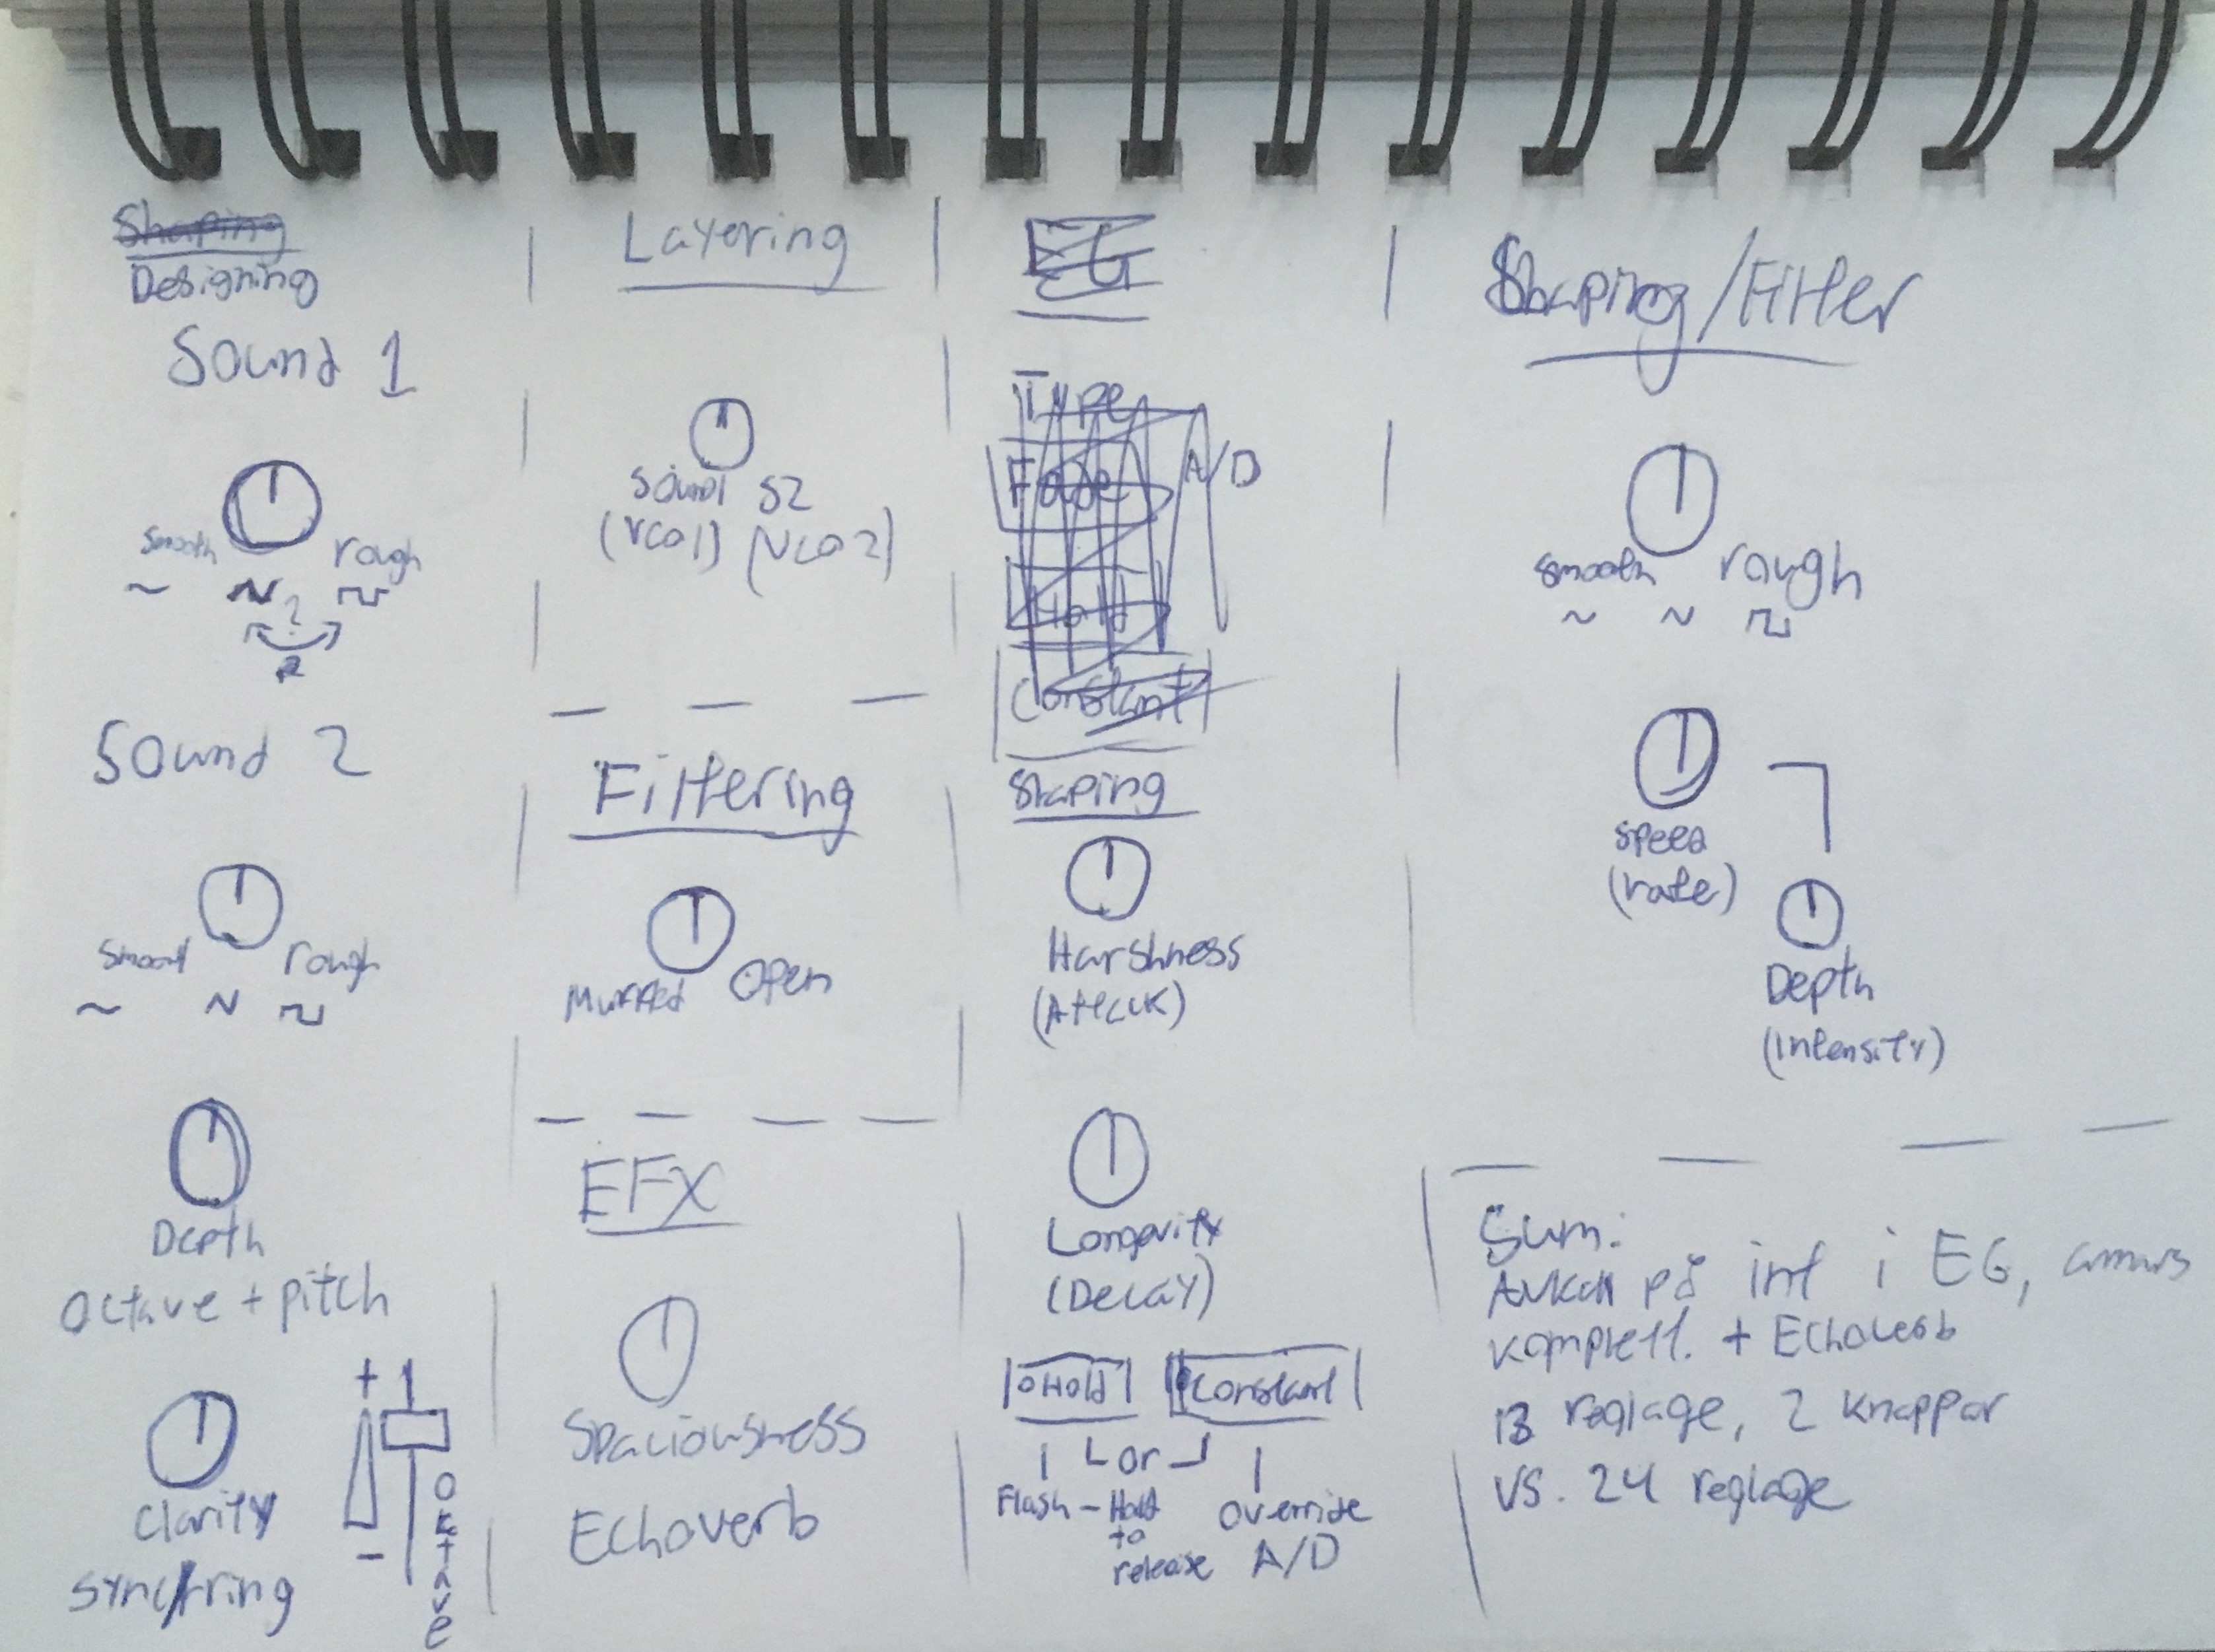 Shaping
Designing
Sound 1
smooth rough
?
R
Sound 2
smooth rough
Depth
octave + pitch
Clarity
sync/ring
+1
-
oktave
Layering
Sound1 S2
(VCO1) (VCO2)
Filtering
Muffled Open
EFX
Spaciousness
Echoverb
EG
Type
Fade A/D
Hold
Constant
Shaping
Harshness
(Attack)
Longevity
(Decay)
Hold Constant
or
Flash - Hold
to
release
override
A/D
Shaping/Filter
smooth rough
Speed
(rate)
Depth
(Intensity)
Sum:
Avkall på inf i EG, annars
komplett. + Echoverb
13 reglage, 2 knappar
vs. 24 reglage